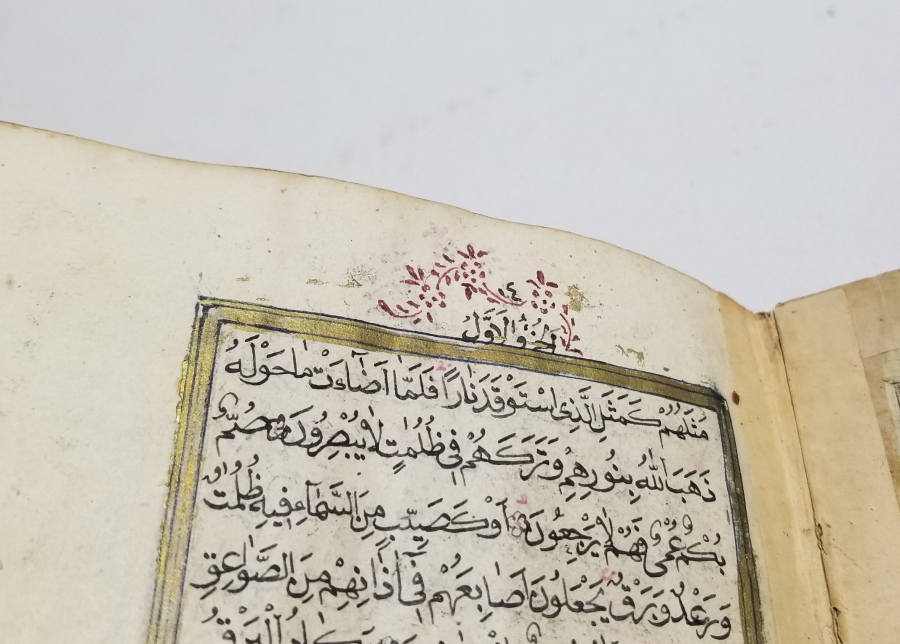 ١٤
الجزؤ الاول
مَثَلُهُمْ كَمَثَلِ الَّذِى اسْتَوْقَدَ نَارًا فَلَمَّا اَضَاءَتْ مَاحَوْلَهُ
ذَهَبَ اللّٰهُ بِنُورِهِمْ وَتَرَكَهُمْ فِى ظُلُمَاتٍ لَايُبْصِرُونَ صُمٌّ
بُكْمٌ عُمْىٌ فَهُمْ لَايَرْجِعُونَ اَوْكَصَيِّبٍ مِنَ السَّمَاءِ فِيهِ ظُلُمَاتٌ
وَرَعْدٌ وَبَرْقٌ يَجْعَلُونَ اَصَابِعَهُمْ فِى اٰذَانِهِمْ مِنَ الصَّوَاعِقِ
الْبَرْقُ